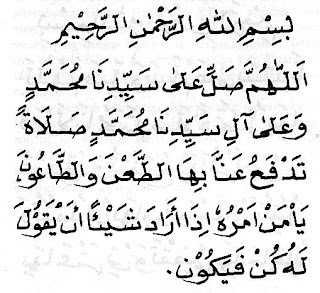 بِسْمِ اللهِ الرَّحْمٰنِ الرَّحِيْمِ
اَللّٰهُمَّ صَلِّ عَلٰى سَيِّدِنَا مُحَمَّدٍ
وَعَلٰى آلِ سَيِّدِنَا مُحَمَّدٍ صَلَاةً
تَدْفَعُ عَنَّا بِهَا الطَّعْنَ وَالطَّاعُوْنَ
يَامَنْ اَمْرُهُ اِذَا أَرَادَ شَيْئًا أَنْ يَقُوْلَ
لَهُ كُنْ فَيَكُوْنُ.